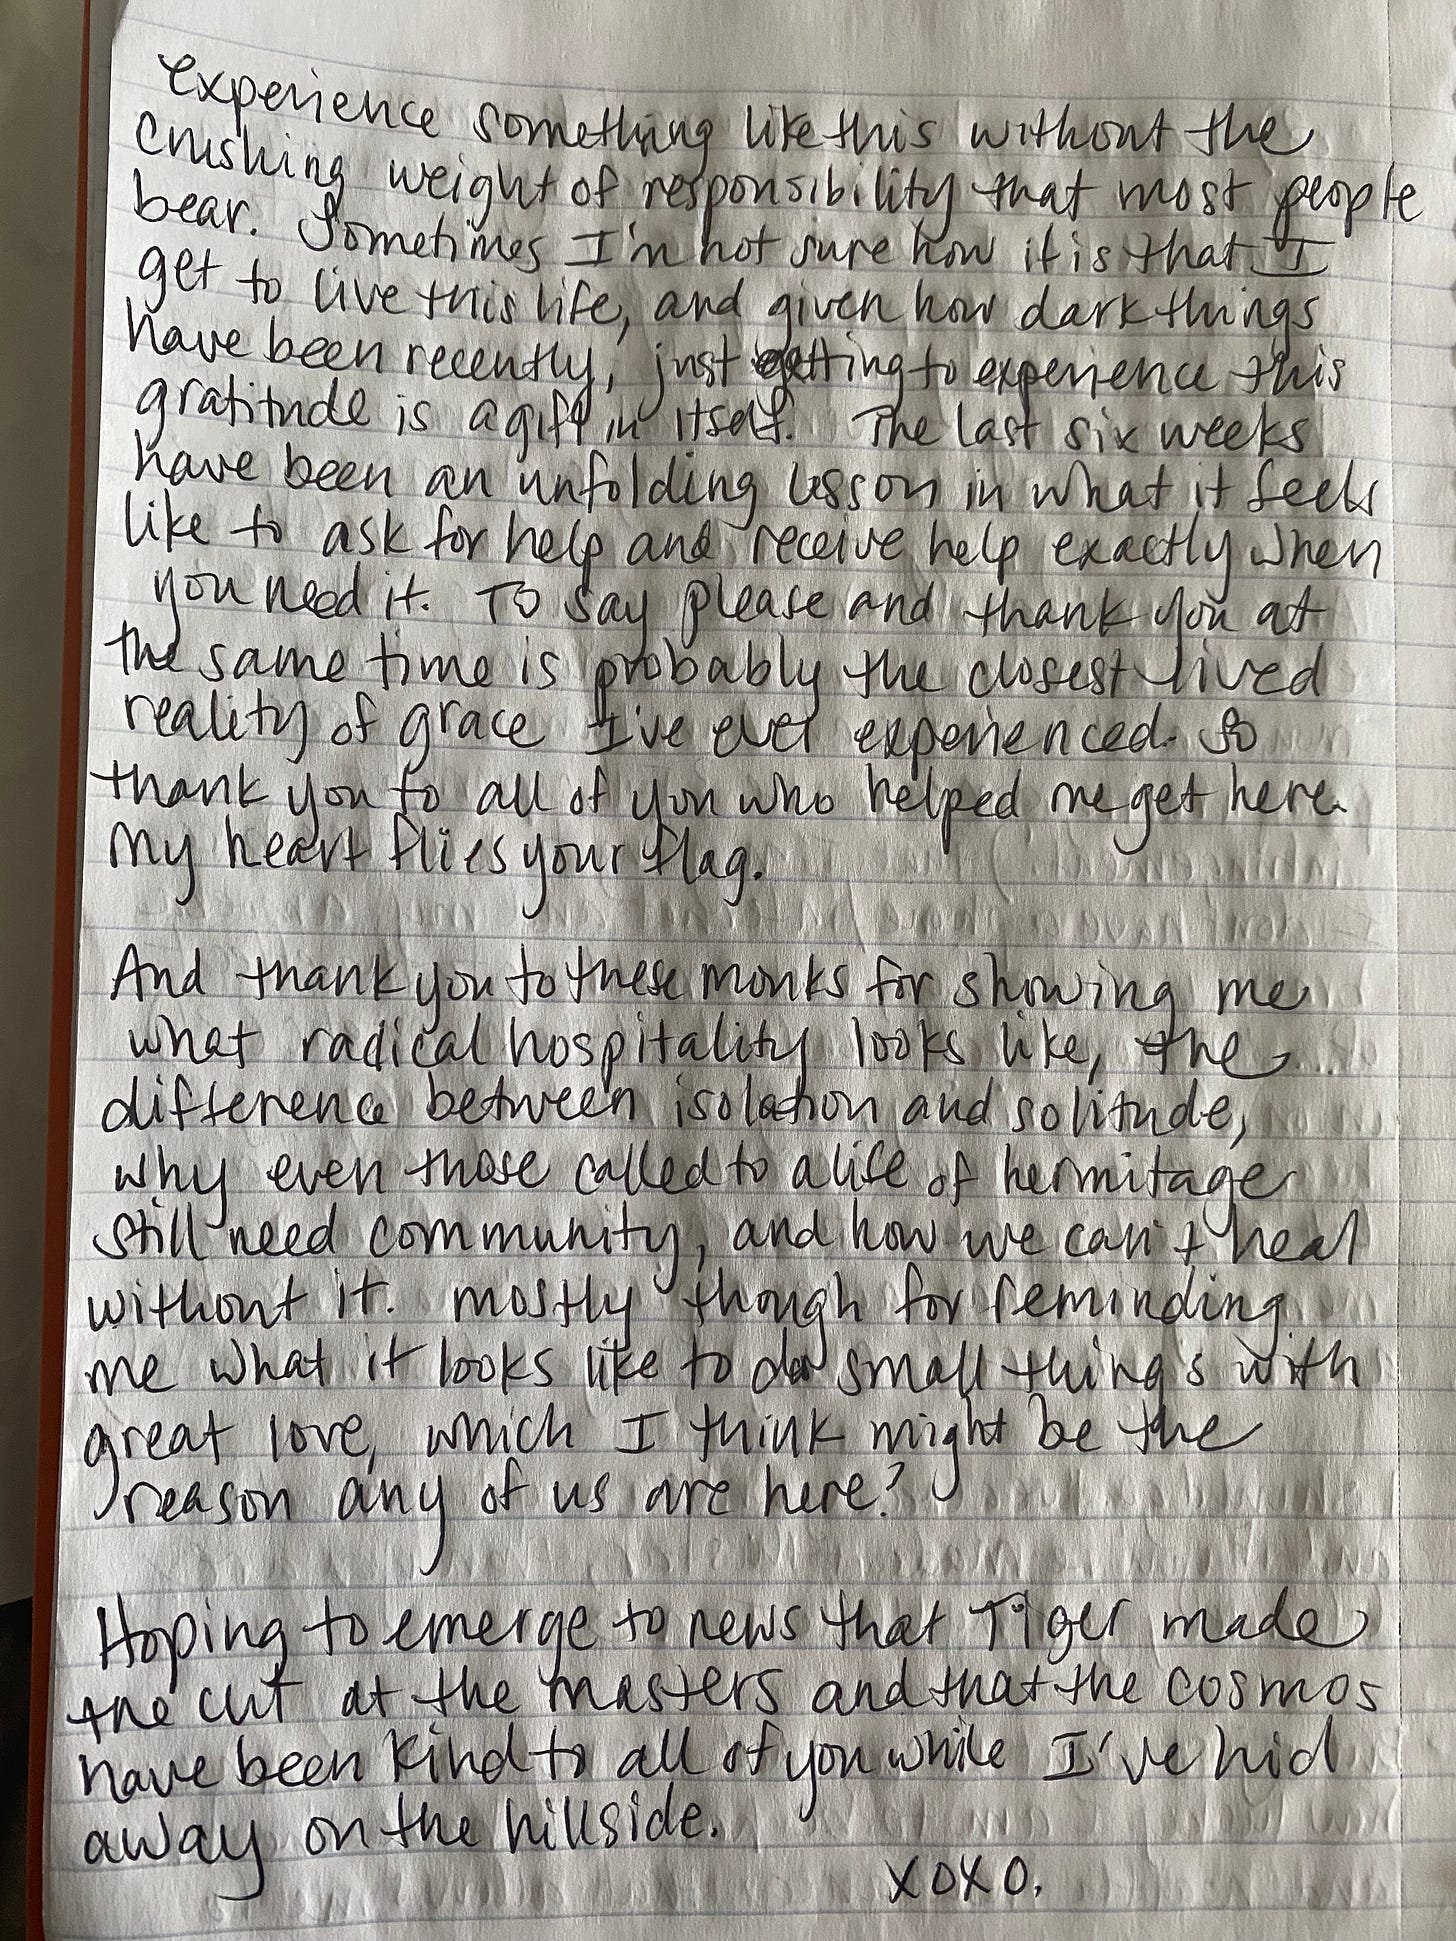 experience something like this without the
crushing weight of responsibility that most people
bear. Sometimes I'm not sure how it is that I
get to live this life, and given how dark things
have been recently, just getting to experience this
gratitude is a gift in itself. The last six weeks
have been an unfolding lesson in what it feels
like to ask for help and receive help exactly when
you need it. To say please and thank you at
the same time is probably the closest lived
reality of grace I've ever experienced. So
thank you to all of you who helped me get here.
My heart flies your flag.
And thank you to these monks for showing me
what radical hospitality looks like, the
difference between isolation and solitude,
why even those called to a life of hermitage
still need community, and how we can't heal
without it. Mostly though for reminding
me what it looks like to do small things with
great love, which I think might be the
reason any of us are here?
Hoping to emerge to news that Tiger made
the cut at the masters and that the cosmos
have been kind to all of you while I've hid
away on the hillside.
XOXO.